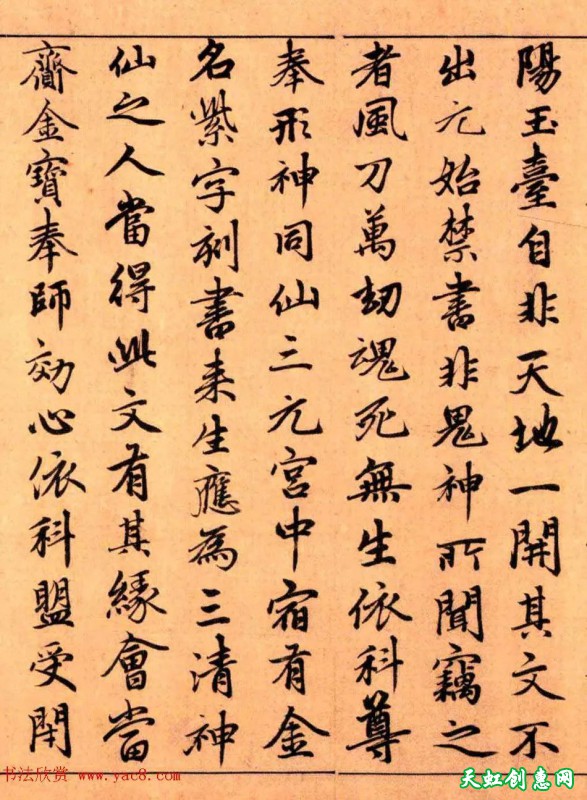 陽玉臺自非天地一開其文不
出元始禁書非鬼神所聞竊之
者風刀萬劫魂死無生依科尊
奉形神同仙三元宮中宿有金
名紫字刻書來生應為三清神
仙之人當得此文有其緣會當
齎金寶奉師効心依科盟受閇
书法欣赏 www.yac8.com
天虹创惠网